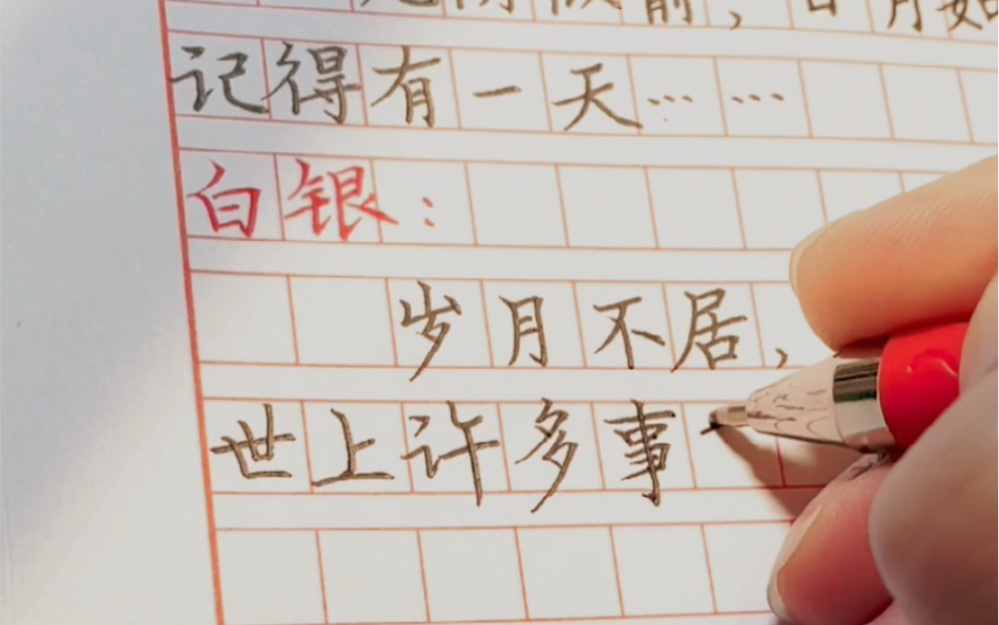 前，日月如
记得有一天……
白银：
岁月不居，
世上许多事